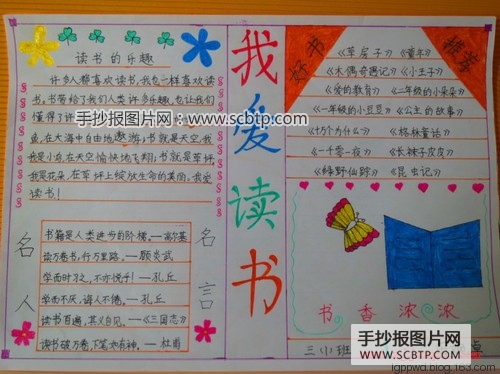 读书的乐趣
许多人都喜欢读书,我也一样喜欢读
书。书带给了我们人类许多乐趣,也让我们
懂得了许
鱼,在大海中自由地遨游;书就是天空,我
我是小鸟在天空愉快地飞翔;书就是草坪
我是花朵,在草坪上绽放生命的美丽,我爱
读书!
名人
名言
书籍是人类进步的阶梯。——高尔基
读万卷书,行万里路。——顾炎武
学而时习之,不亦悦乎!——孔丘
学而不厌,诲人不倦。——孔丘
读书百遍,其义自见。——《三国志》
读书破万卷,下笔如有神。——杜甫
我爱读书
好书
推荐
《草房子》《童年》
《木偶奇遇记》《小王子》
《爱的教育》《二年级的小朵朵》
《一年级的小豆豆》《公主的故事》
《十万个为什么》《格林童话》
《一千零一夜》《长袜子皮皮》
《绿野仙踪》《昆虫记》
书香浓浓
三(1)班
手抄报图片网
www.scbtp.com
手抄报图片网
WWW.SCBTP.COM
lgppwd.blog.163.com